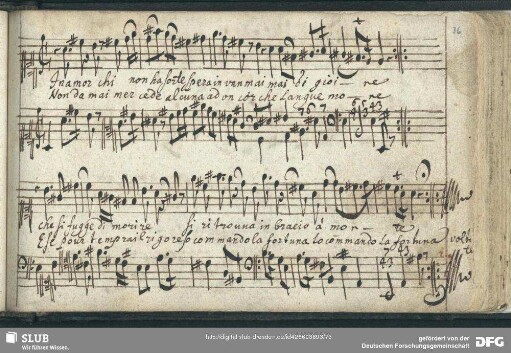 36
In amor chi non ha sorte spera in van mai mai di gioi re
Non da mai mercede alcuna ad un cor che langue mo — re
che si fugge di morire si ritroua in bracio à mor — te
E se pour temprar il rigore commando la fortuna lo commando la fortuna volti
SLUB
Wir führen Wissen.
gefördert von der
Deutschen Forschungsgemeinschaft
DFG